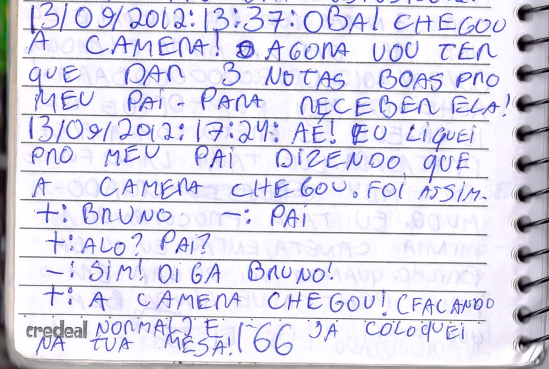 13/09/2012:13:37:OBA! CHEGOU
A CAMERA! AGORA VOU TER
QUE DAR 3 NOTAS BOAS PRO
MEU PAI - PARA RECEBER ELA!
13/09/2012:17:24: AÉ! EU LIQUEI
PRO MEU PAI DIZENDO QUE
A CAMERA CHEGOU. FOI ASSIM.
+: BRUNO -: PAI
+: ALO? PAI?
-: SIM! DIGA BRUNO!
+: A CAMERA CHEGOU! (FACANDO
credeal NORMAL) E JA COLOQUEI
NA TUA MESA! 66